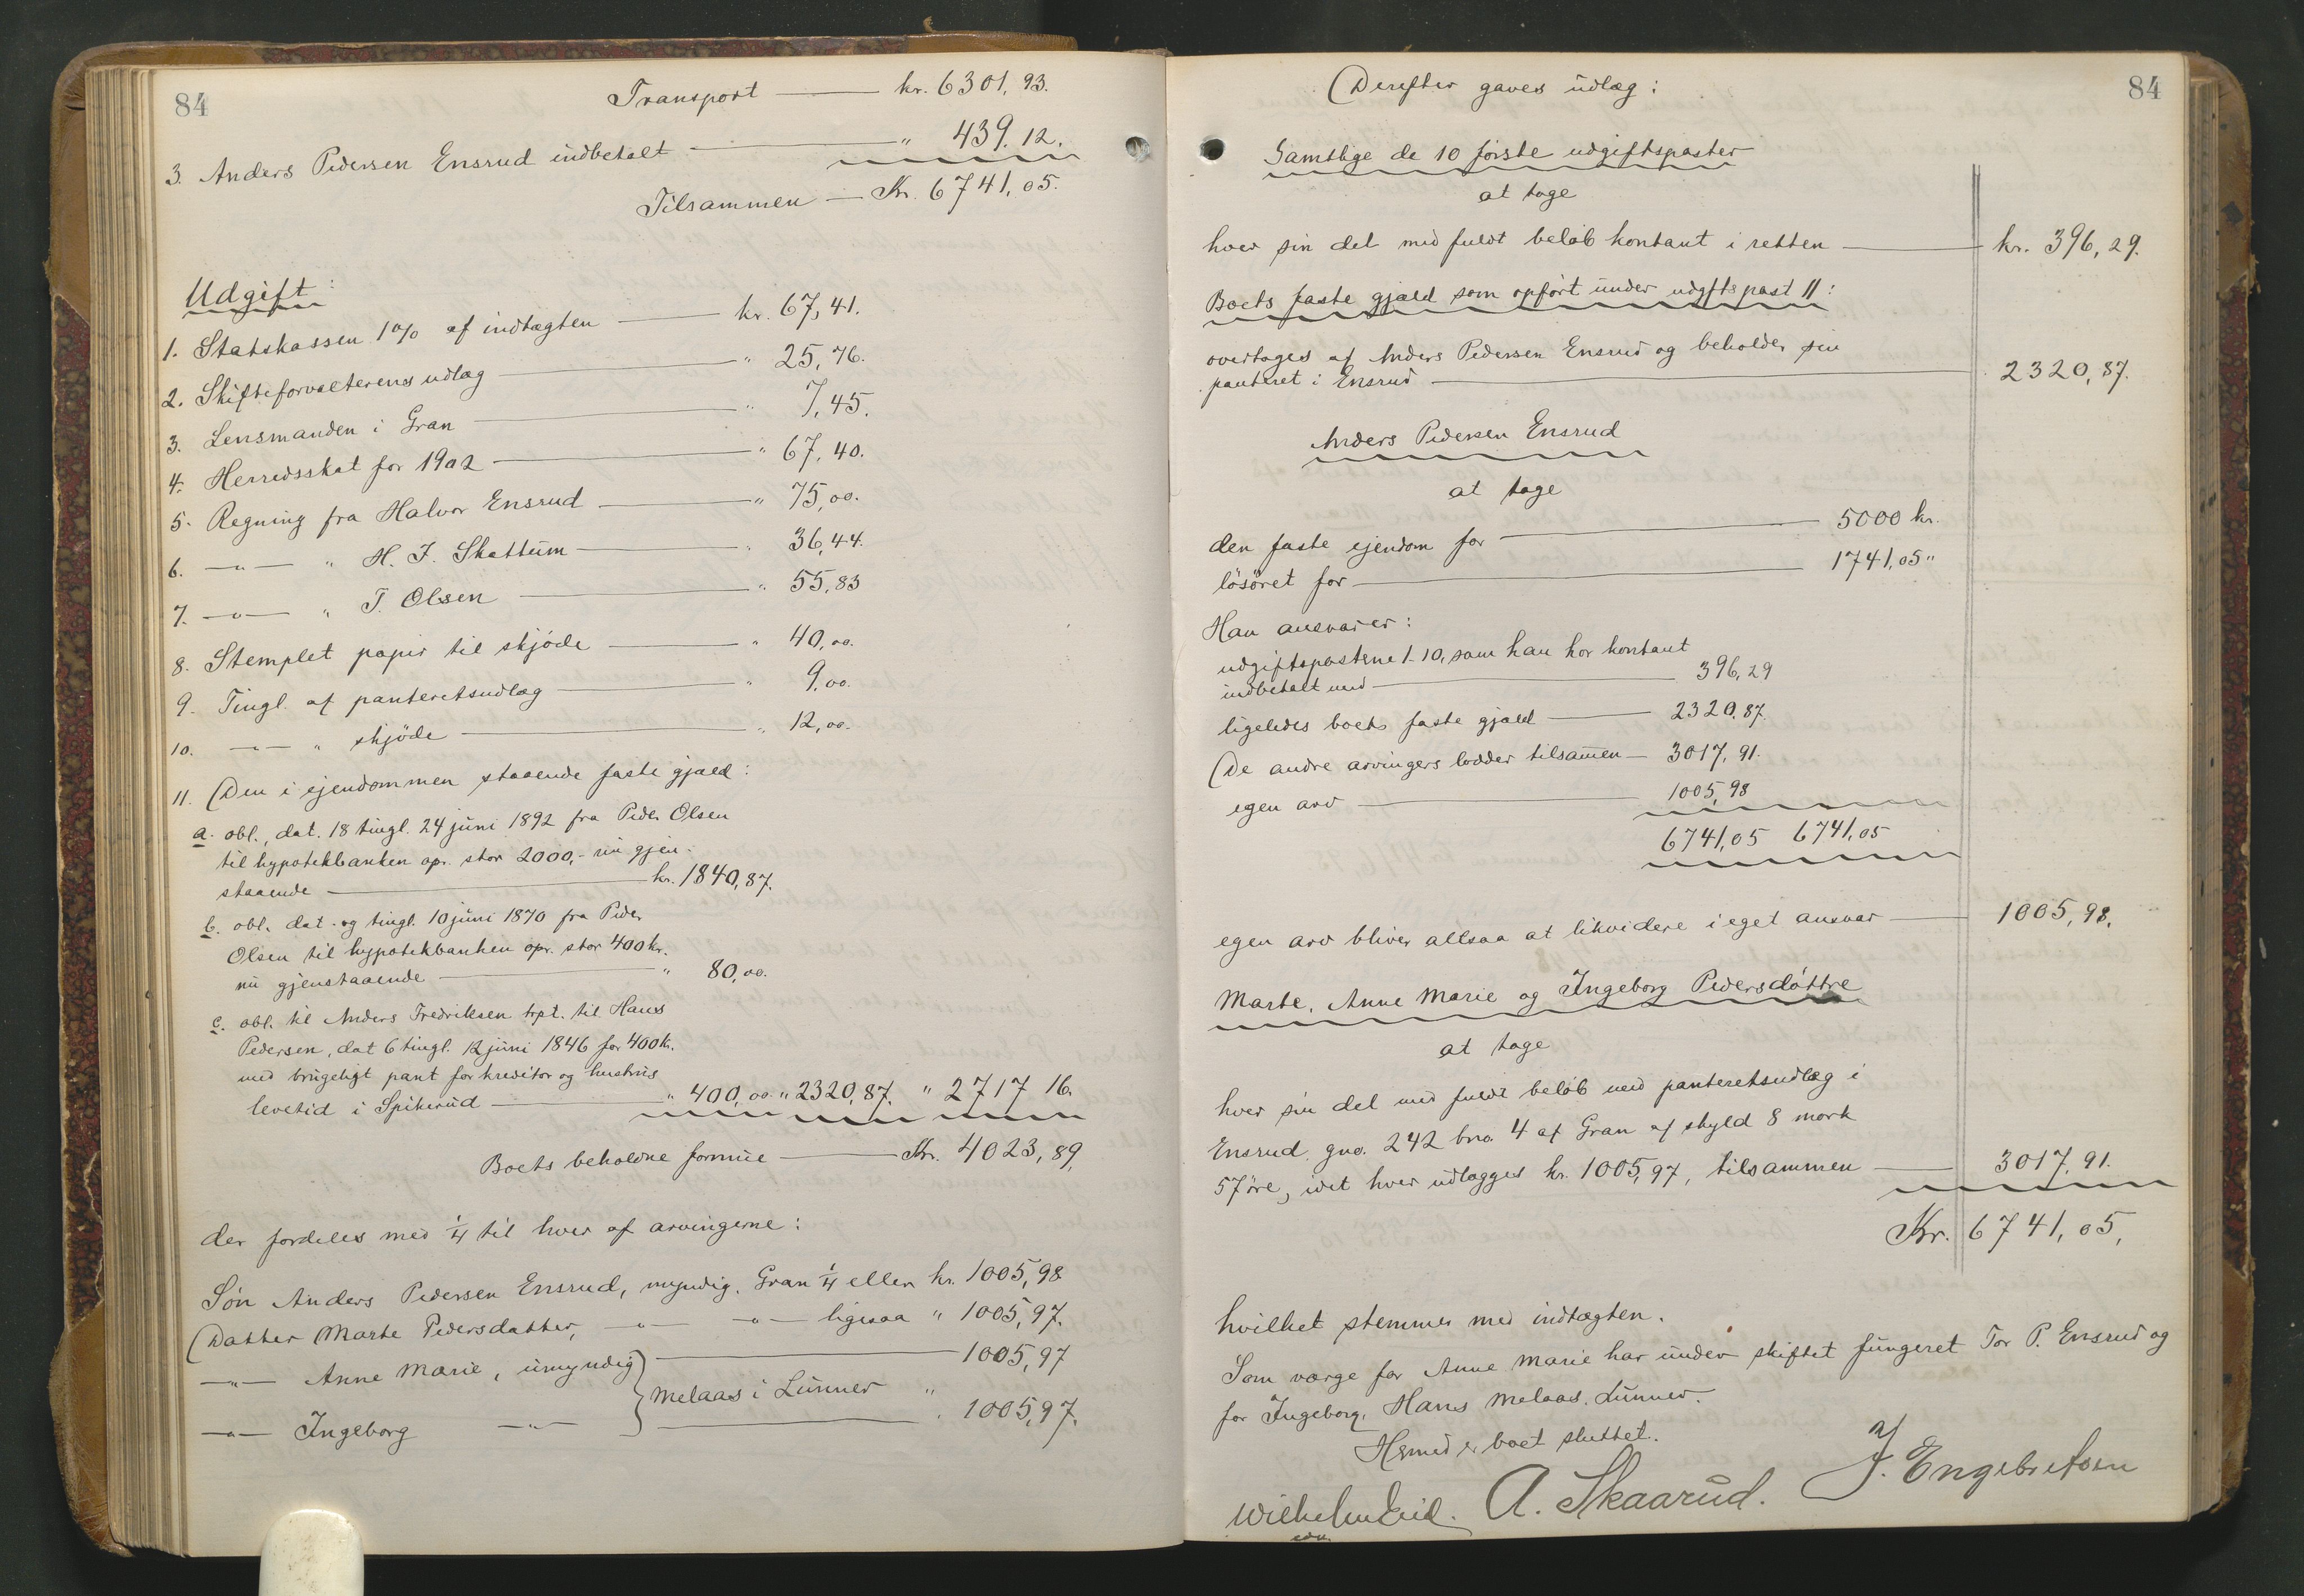 84
Transport — kr. 6301,93.
3. Anders Pedersen Ensrud indbetalt — " 439.12.
Tilsammen — Kr. 6741,05.
Udgift:
1. Statskassen 1% af indtægten — kr. 67,41.
2. Skifteforvalterens udlæg — " 25,76.
3. Lensmanden i Gran — " 7,45.
4. Herredsskat for 1902 — " 67,40.
5. Regning fra Halvor Ensrud — " 75,00.
6. —"— " H. J. Skattum — " 36,44.
7. —"— " T. Olsen — " 55,83
8. Stemplet papir til skjöde — " 40,00.
9. Tingl. af panteretsudlæg — " 9,00.
10. —"— " skjöde — " 12,00.
11. Den i ejendommen staaende faste gjæld:
a. obl., dat. 18 tingl. 24 juni 1892 fra Peder Olsen
til hypotekbanken opr. stor 2000,- nu gjen-
staaende — kr. 1840,87.
b. obl. dat. og tingl. 10 juni 1870 fra Peder
Olsen til hypotekbanken opr. stor 400 kr.
nu gjenstaaende — " 80,00.
c. obl. til Anders Fredriksen trpt. til Hans
Pedersen, dat 6 tingl. 12 juni 1846 for 400 kr.
med brugeligt pant for kreditor og hustrus
levetid i Spikerud — " 400,00 " 2320,87. " 2717 16.
Boets beholdne formue — Kr. 4023,89,
der fordeles med 1/4 til hver af arvingerne:
Sön Anders Pedersen Ensrud, myndig, Gran 1/4 eller kr. 1005,98
Datter Marte Pedersdatter, —"— —"— ligesaa " 1005,97.
—"— Anne Marie, umyndig — 1005,97
} Melaas i Lunner "
—"— Ingeborg —"— — " 1005,97.
84
Derefter gaves udlæg:
Samtlige de 10 förste udgiftsposter
at tage
hver sin del med fuldt belöb kontant i retten — kr. 396,29.
Boets faste gjæld som opfört under udgftspost 11:
overtages af Anders Pedersen Ensrud og beholder sin
panteret i Ensrud — 2320,87.
Anders Pedersen Ensrud
at tage
den faste ejendom for — 5000 kr.
lösöret for — 1741,05 "
Han ansvarer:
udgiftspostene 1-10, som han har kontant
indbetalt med — 396,29
ligeledes boets faste gjæld — 2320,87.
De andre arvingers lodder tilsamen — 3017,91.
egen arv — 1005,98
6741,05 6741,05
egen arv bliver altsaa at likvidere i eget ansvar — 1005,98.
Marte, Anne Marie og Ingeborg Pedersdöttre
at tage
hver sin del med fuldt belöb med panteretsudlæg i
Ensrud gno. 242 bno. 4 af Gran af skyld 8 mark
57 öre, idet hver udlægges kr. 1005,97, tilsammen — 3017,91.
Kr. 6741,05,
hvilket stemmer med indtægten.
Som værge for Anne Marie har under skiftet fungeret Tor P. Ensrud og
for Ingeborg, Hans Melaas, Lunner.
Hermed er boet sluttet.
Wilhelm Eid. A. Skaarud. J. Engebretsen